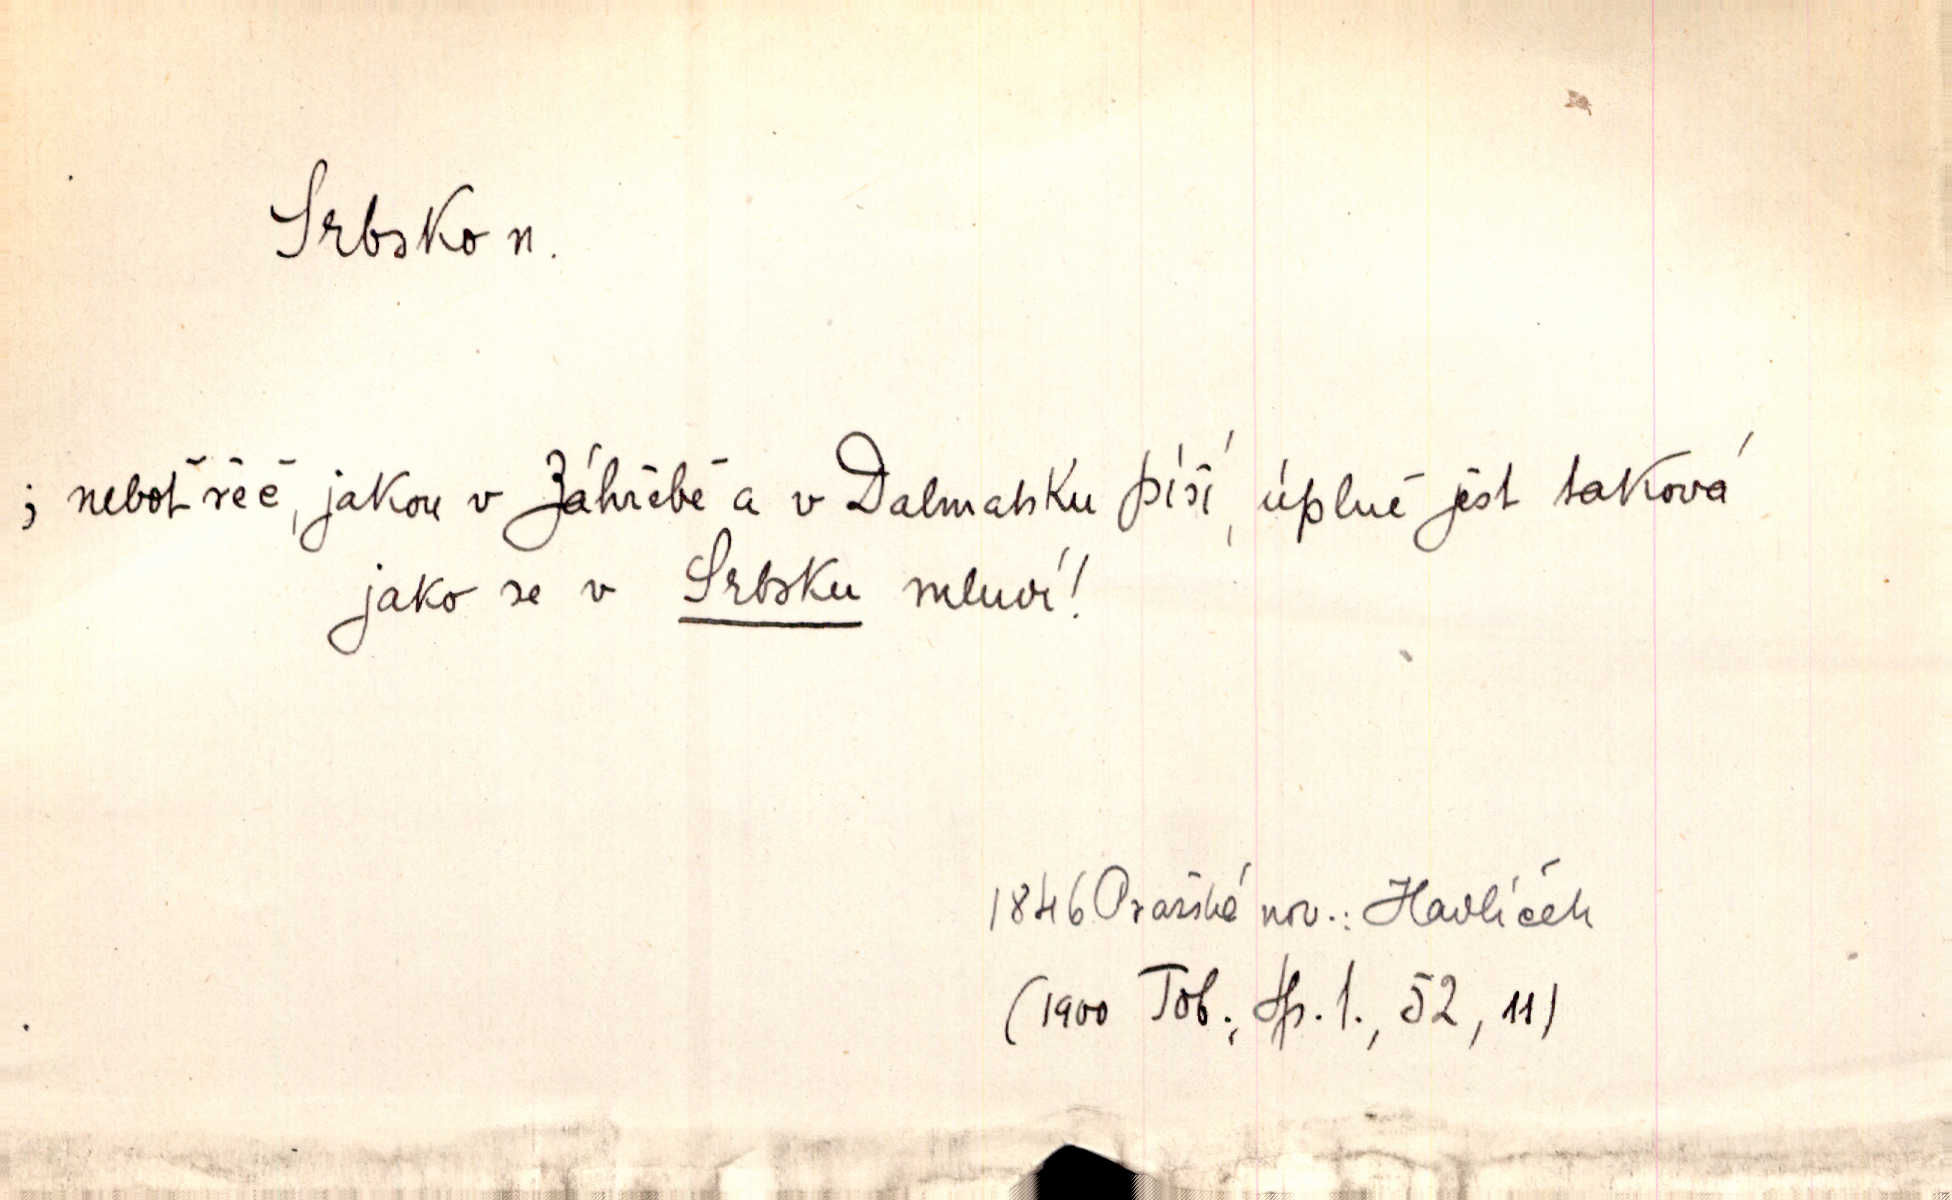 Srbsko n.
; neboť řeč, jakou v Záhřebě a v Dalmatsku píší, úplně jest taková
jako se v Srbsku mluví!
1846 Pražské nov.: Havlíček
(1900 Tob., Sp. 1., 52, 11)